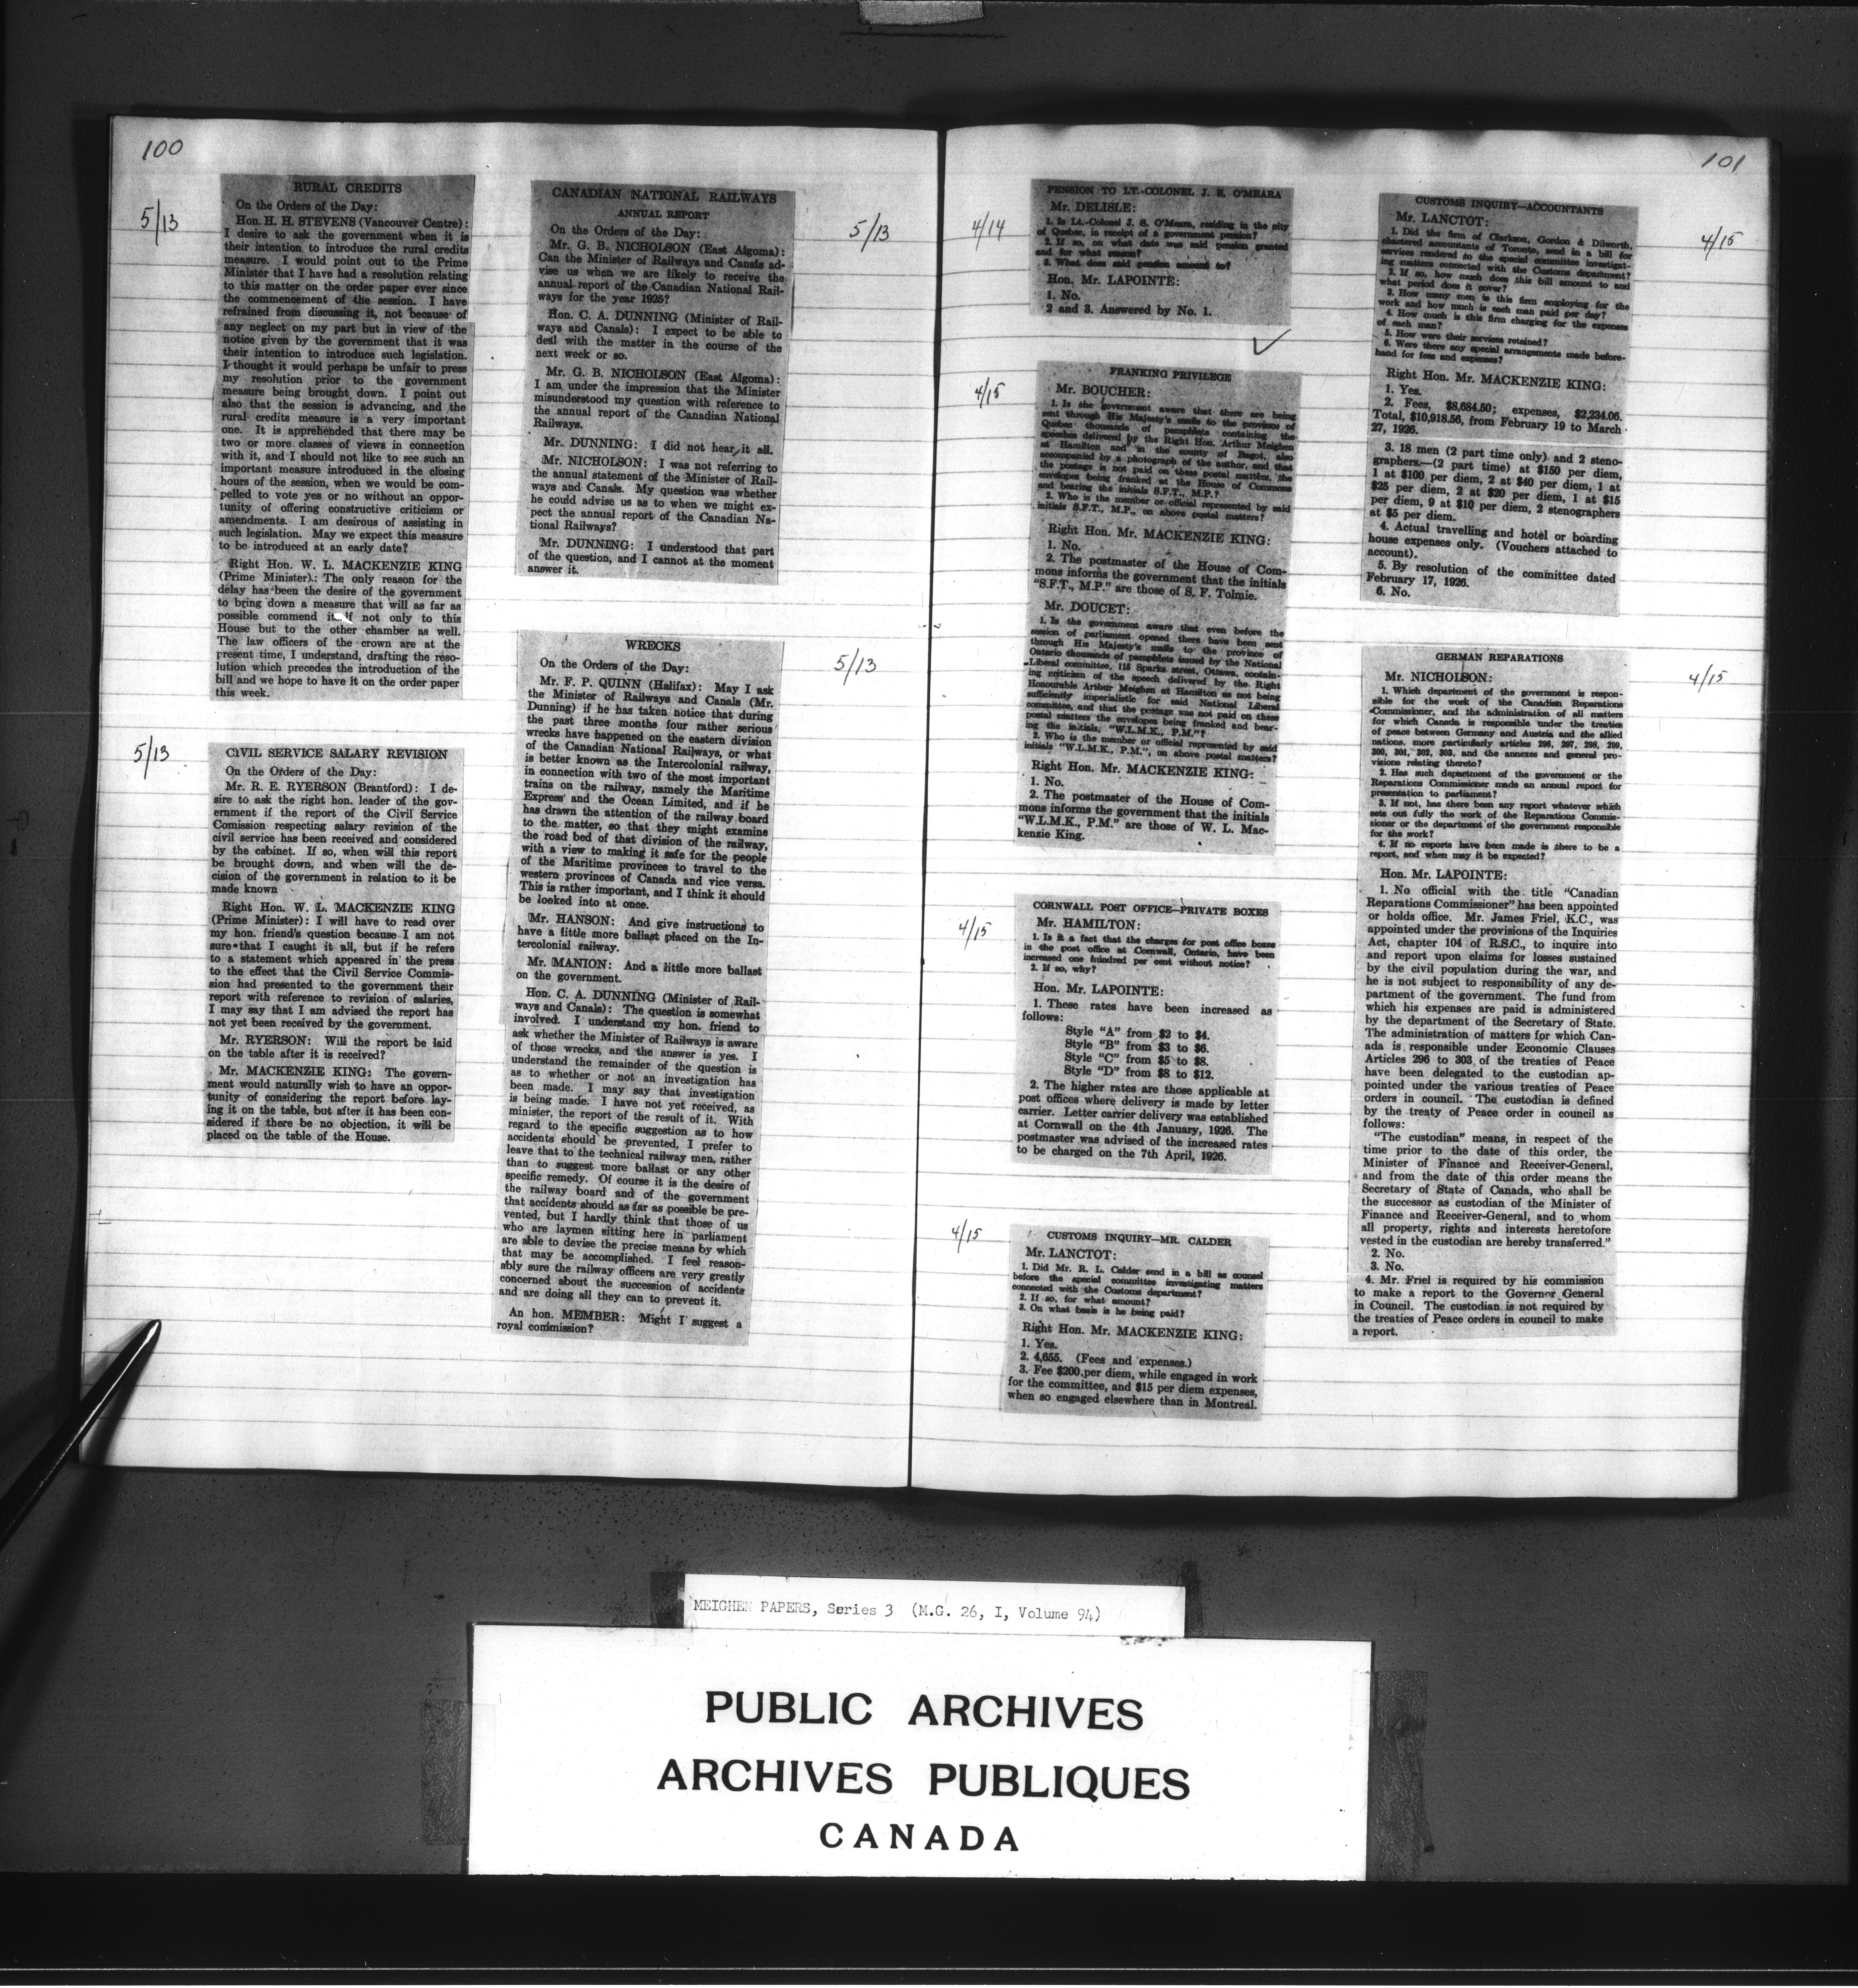 100
5/13
RURAL CREDITS
On the Orders of the Day:
Hon. H. H. STEVENS (Vancouver Centre):
I desire to ask the government when it is
their intention to introduce the rural credits
measure. I would point out to the Prime
Minister that I have had a resolution relating
to this matter on the order paper ever since
the commencement of the session. I have
refrained from discussing it, not because of
any neglect on my part but in view of the
notice given by the government that it was
their intention to introduce such legislation.
I thought it would perhaps be unfair to press
my resolution prior to the government
measure being brought down. I point out
also that the session is advancing, and the
rural credits measure is a very important
one. It is apprehended that there may be
two or more classes of views in connection
with it, and I should not like to see such an
important measure introduced in the closing
hours of the session, when we would be com-
pelled to vote yes or no without an oppor-
tunity of offering constructive criticism or
amendments. I am desirous of assisting in
such legislation. May we expect this measure
to be introduced at an early date?
Right Hon. W. L. MACKENZIE KING
(Prime Minister): The only reason for the
delay has been the desire of the government
to bring down a measure that will as far as
possible commend itself not only to this
House but to the other chamber as well.
The law officers of the crown are at the
present time, I understand, drafting the reso-
lution which precedes the introduction of the
bill and we hope to have it on the order paper
this week.
5/13
CIVIL SERVICE SALARY REVISION
On the Orders of the Day:
Mr. R. E. RYERSON (Brantford): I de-
sire to ask the right hon. leader of the gov-
ernment if the report of the Civil Service
Comission respecting salary revision of the
civil service has been received and considered
by the cabinet. If so, when will this report
be brought down, and when will the de-
cision of the government in relation to it be
made known
Right Hon. W. L. MACKENZIE KING
(Prime Minister): I will have to read over
my hon. friend's question because I am not
sure that I caught it all, but if he refers
to a statement which appeared in the press
to the effect that the Civil Service Commis-
sion had presented to the government their
report with reference to revision of salaries,
I may say that I am advised the report has
not yet been received by the government.
Mr. RYERSON: Will the report be laid
on the table after it is received?
Mr. MACKENZIE KING: The govern-
ment would naturally wish to have an oppor-
tunity of considering the report before lay-
ing it on the table, but after it has been con-
sidered if there be no objection, it will be
placed on the table of the House.
5/13
CANADIAN NATIONAL RAILWAYS
ANNUAL REPORT
On the Orders of the Day:
Mr. G. B. NICHOLSON (East Algoma):
Can the Minister of Railways and Canals ad-
vise us when we are likely to receive the
annual report of the Canadian National Rail-
ways for the year 1925?
Hon. C. A. DUNNING (Minister of Rail-
ways and Canals): I expect to be able to
deal with the matter in the course of the
next week or so.
Mr. G. B. NICHOLSON (East Algoma):
I am under the impression that the Minister
misunderstood my question with reference to
the annual report of the Canadian National
Railways.
Mr. DUNNING: I did not hear it all.
Mr. NICHOLSON: I was not referring to
the annual statement of the Minister of Rail-
ways and Canals. My question was whether
he could advise us as to when we might ex-
pect the annual report of the Canadian Na-
tional Railways?
Mr. DUNNING: I understood that part
of the question, and I cannot at the moment
answer it.
5/13
WRECKS
On the Orders of the Day:
Mr. F. P. QUINN (Halifax): May I ask
the Minister of Railways and Canals (Mr.
Dunning) if he has taken notice that during
the past three months four rather serious
wrecks have happened on the eastern division
of the Canadian National Railways, or what
is better known as the Intercolonial railway,
in connection with two of the most important
trains on the railway, namely the Maritime
Express and the Ocean Limited, and if he
has drawn the attention of the railway board
to the matter, so that they might examine
the road bed of that division of the railway,
with a view to making it safe for the people
of the Maritime provinces to travel to the
western provinces of Canada and vice versa.
This is rather important, and I think it should
be looked into at once.
Mr. HANSON: And give instructions to
have a little more ballast placed on the In-
tercolonial railway.
Mr. MANION: And a little more ballast
on the government.
Hon. C. A. DUNNING (Minister of Rail-
ways and Canals): The question is somewhat
involved. I understand my hon. friend to
ask whether the Minister of Railways is aware
of those wrecks, and the answer is yes. I
understand the remainder of the question is
as to whether or not an investigation has
been made. I may say that investigation
is being made. I have not yet received, as
minister, the report of the result of it. With
regard to the specific suggestion as to how
accidents should be prevented, I prefer to
leave that to the technical railway men, rather
than to suggest more ballast or any other
specific remedy. Of course it is the desire of
the railway board and of the government
that accidents should as far as possible be pre-
vented, but I hardly think that those of us
who are laymen sitting here in parliament
are able to devise the precise means by which
that may be accomplished. I feel reason-
ably sure the railway officers are very greatly
concerned about the succession of accidents
and are doing all they can to prevent it.
An hon. MEMBER: Might I suggest a
royal commission?
101
4/14
PENSION TO LT.-COLONEL J. S. O'MEARA
Mr. DELISLE:
1. Is Lt.-Colonel J. S. O'Meara, residing in the city
of Quebec, in receipt of a government pension?
2. If so, on what date was said pension granted
and for what reason?
3. What does said pension amount to?
Hon. Mr. LAPOINTE:
1. No.
2 and 3. Answered by No. 1.
4/15
FRANKING PRIVILEGE
Mr. BOUCHER:
1. Is the government aware that there are being
sent through His Majesty's mails to the province of
Quebec thousands of pamphlets containing the
speeches delivered by the Right Hon. Arthur Meighen
at Hamilton and in the county of Bagot, also
accompanied by a photograph of the author, and that
the postage is not paid on these postal matters, the
envelopes being franked at the House of Commons
and bearing the initials S.F.T., M.P.?
2. Who is the member or official represented by said
initials S.F.T., M.P., on above postal matters?
Right Hon. Mr. MACKENZIE KING:
1. No.
2. The postmaster of the House of Com-
mons informs the government that the initials
"S.F.T., M.P." are those of S. F. Tolmie.
Mr. DOUCET:
1. Is the government aware that even before the
session of parliament opened there have been sent
through His Majesty's mails to the province of
Ontario thousands of pamphlets issued by the National
Liberal committee, 115 Sparks street, Ottawa, contain-
ing criticism of the speech delivered by the Right
Honourable Arthur Meighen at Hamilton as not being
sufficiently imperialistic for said National Liberal
committee, and that the postage was not paid on these
postal matters the envelopes being franked and bear-
ing the initials, "W.L.M.K., P.M."?
2. Who is the member or official represented by said
initials "W.L.M.K., P.M.", on above postal matters?
Right Hon. Mr. MACKENZIE KING:
1. No.
2. The postmaster of the House of Com-
mons informs the government that the initials
"W.L.M.K., P.M." are those of W. L. Mac-
kenzie King.
4/15
CORNWALL POST OFFICE—PRIVATE BOXES
Mr. HAMILTON:
1. Is it a fact that the charges for post office boxes
in the post office at Cornwall, Ontario, have been
increased one hundred per cent without notice?
2. If so, why?
Hon. Mr. LAPOINTE:
1. These rates have been increased as
follows:
Style "A" from $2 to $4.
Style "B" from $3 to $6.
Style "C" from $5 to $8.
Style "D" from $8 to $12.
2. The higher rates are those applicable at
post offices where delivery is made by letter
carrier. Letter carrier delivery was established
at Cornwall on the 4th January, 1926. The
postmaster was advised of the increased rates
to be charged on the 7th April, 1926.
4/15
CUSTOMS INQUIRY—MR. CALDER
Mr. LANCTOT:
1. Did Mr. R. L. Calder send in a bill as counsel
before the special committee investigating matters
connected with the Customs department?
2. If so, for what amount?
3. On what basis is he being paid?
Right Hon. Mr. MACKENZIE KING:
1. Yes.
2. 4,655. (Fees and expenses.)
3. Fee $200 per diem, while engaged in work
for the committee, and $15 per diem expenses,
when so engaged elsewhere than in Montreal.
4/15
CUSTOMS INQUIRY—ACCOUNTANTS
Mr. LANCTOT:
1. Did the firm of Clarkson, Gordon & Dilworth,
chartered accountants of Toronto, send in a bill for
services rendered to the special committee investigat-
ing matters connected with the Customs department?
2. If so, how much does this bill amount to and
what period does it cover?
3. How many men is this firm employing for the
work and how much is each man paid per day?
4. How much is this firm charging for the expenses
of each man?
5. How were their services retained?
6. Were there any special arrangements made before-
hand for fees and expenses?
Right Hon. Mr. MACKENZIE KING:
1. Yes.
2. Fees, $8,684.50; expenses, $2,234.06.
Total, $10,918.56, from February 19 to March
27, 1926.
3. 18 men (2 part time only) and 2 steno-
graphers—(2 part time) at $150 per diem,
1 at $100 per diem, 2 at $40 per diem, 1 at
$25 per diem, 2 at $20 per diem, 1 at $15
per diem, 9 at $10 per diem, 2 stenographers
at $5 per diem.
4. Actual travelling and hotel or boarding
house expenses only. (Vouchers attached to
account).
5. By resolution of the committee dated
February 17, 1926.
6. No.
4/15
GERMAN REPARATIONS
Mr. NICHOLSON:
1. Which department of the government is respon-
sible for the work of the Canadian Reparations
Commissioner, and the administration of all matters
for which Canada is responsible under the treaties
of peace between Germany and Austria and the allied
nations, more particularly articles 296, 297, 298, 299,
300, 301, 302, 303, and the annexes and general pro-
visions relating thereto?
2. Has such department of the government or the
Reparations Commissioner made an annual report for
presentation to parliament?
3. If not, has there been any report whatever which
sets out fully the work of the Reparations Commis-
sioner or the department of the government responsible
for the work?
4. If no reports have been made is there to be a
report, and when may it be expected?
Hon. Mr. LAPOINTE:
1. No official with the title "Canadian
Reparations Commissioner" has been appointed
or holds office. Mr. James Friel, K.C., was
appointed under the provisions of the Inquiries
Act, chapter 104 of R.S.C., to inquire into
and report upon claims for losses sustained
by the civil population during the war, and
he is not subject to responsibility of any de-
partment of the government. The fund from
which his expenses are paid is administered
by the department of the Secretary of State.
The administration of matters for which Can-
ada is responsible under Economic Clauses
Articles 296 to 303 of the treaties of Peace
have been delegated to the custodian ap-
pointed under the various treaties of Peace
orders in council. The custodian is defined
by the treaty of Peace order in council as
follows:
"The custodian" means, in respect of the
time prior to the date of this order, the
Minister of Finance and Receiver-General,
and from the date of this order means the
Secretary of State of Canada, who shall be
the successor as custodian of the Minister of
Finance and Receiver-General, and to whom
all property, rights and interests heretofore
vested in the custodian are hereby transferred."
2. No.
3. No.
4. Mr. Friel is required by his commission
to make a report to the Governor General
in Council. The custodian is not required by
the treaties of Peace orders in council to make
a report.
MEIGHEN PAPERS, Series 3 (M.G. 26, I, Volume 94)
PUBLIC ARCHIVES
ARCHIVES PUBLIQUES
CANADA